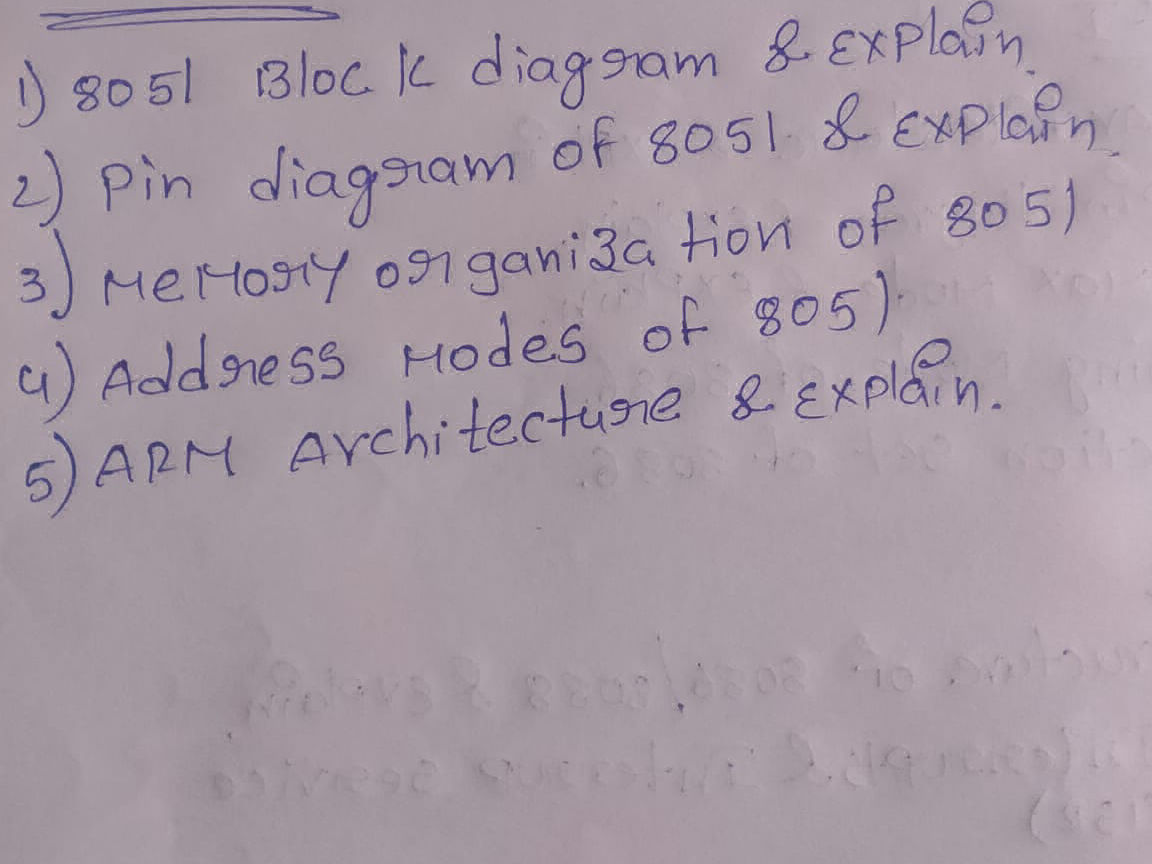 1) 8051 Block diagram & Explain.
2) Pin diagram of 8051 & Explain.
3) Memory organization of 8051
4) Address Modes of 8051
5) ARM Architecture & Explain.